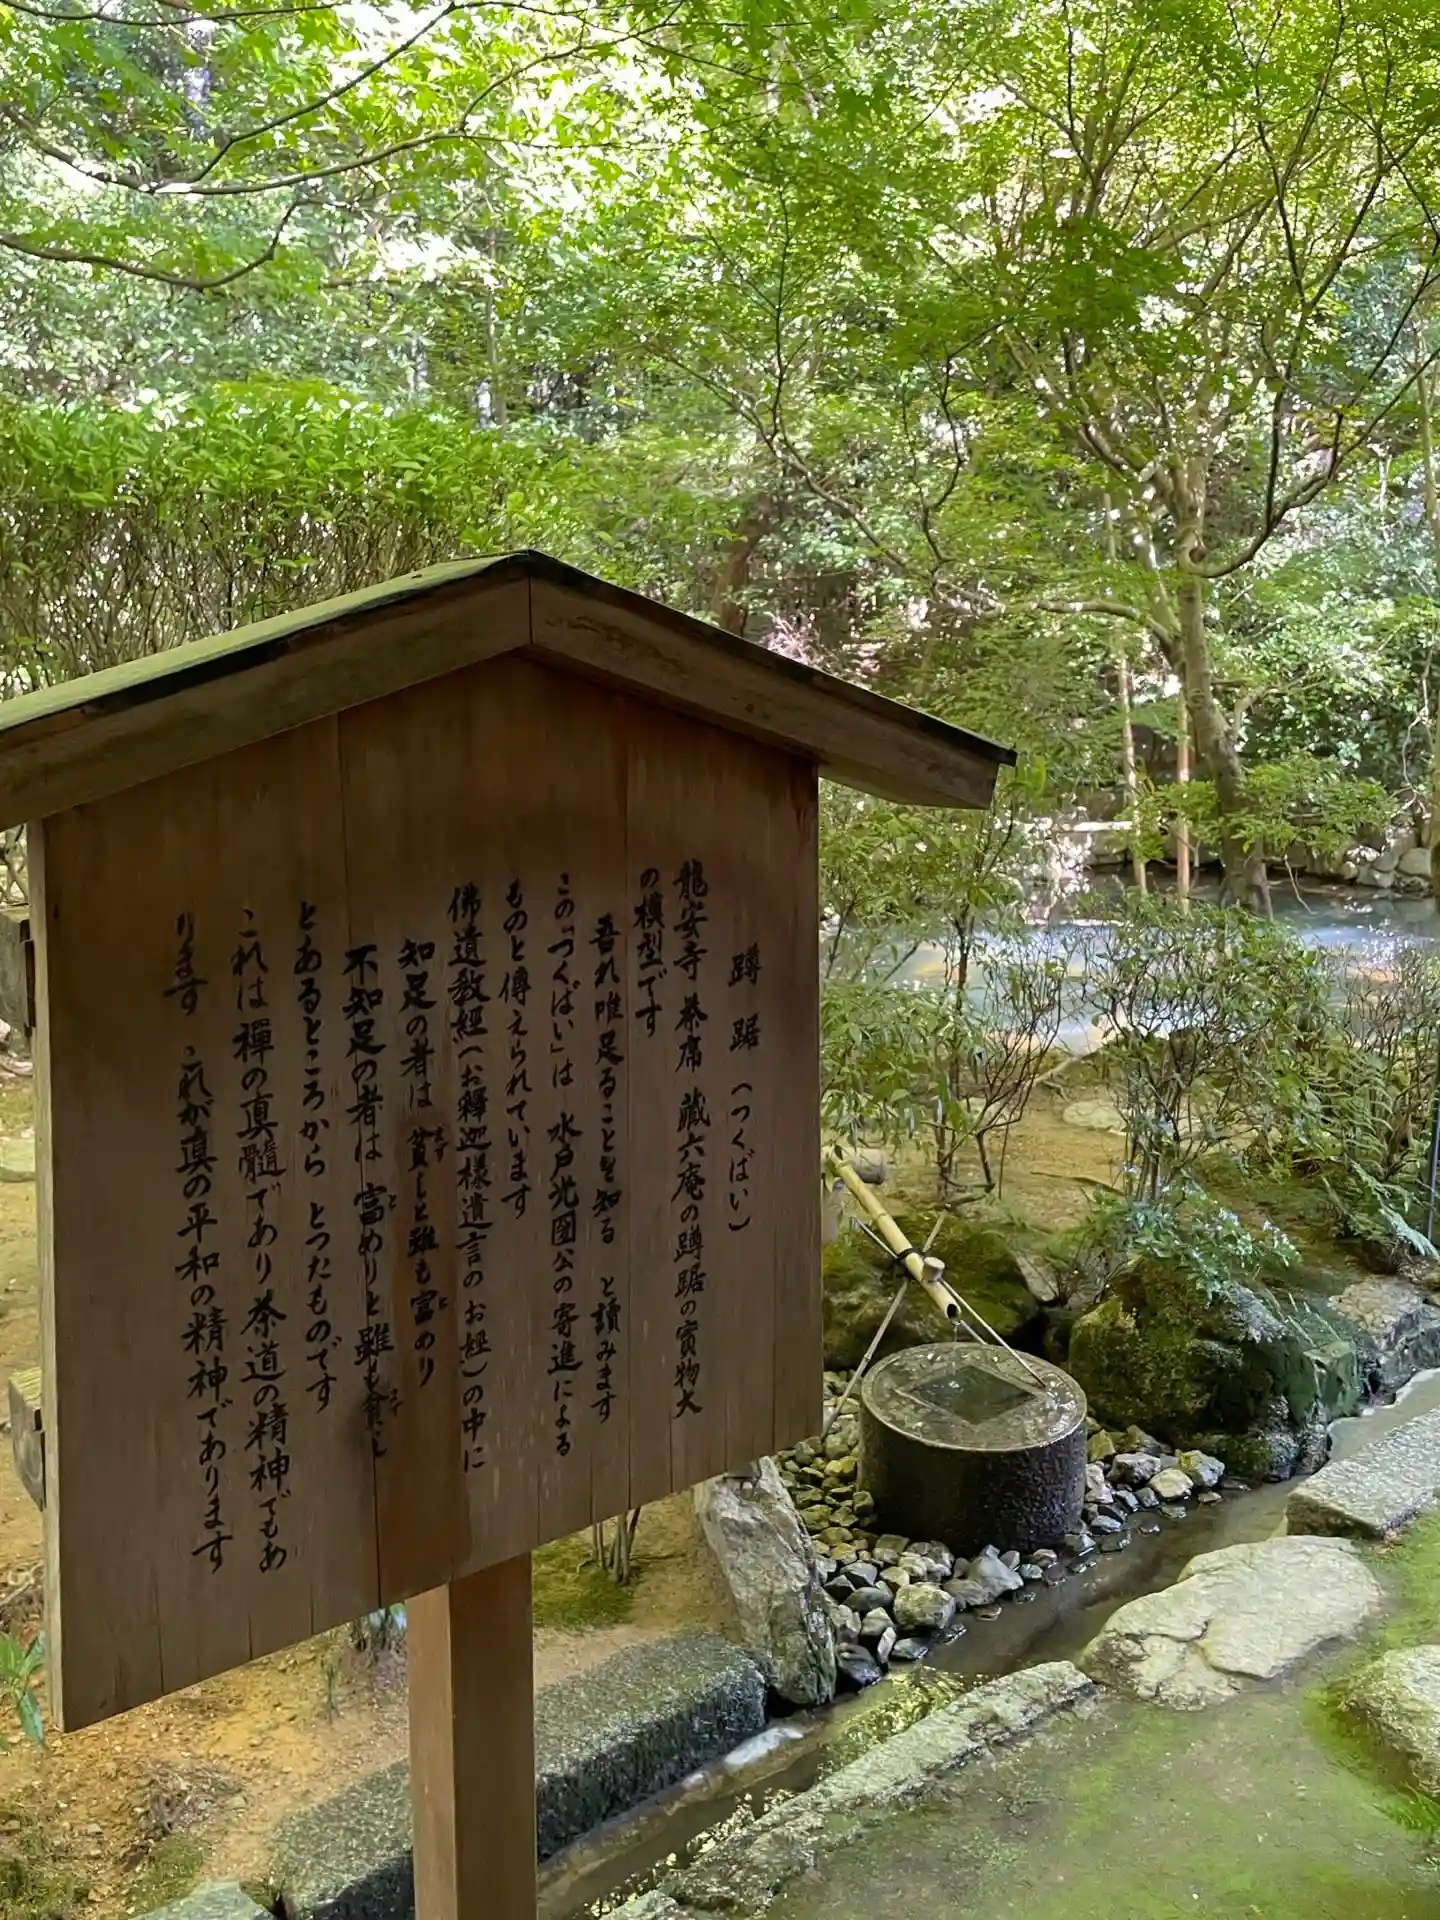 蹲踞(つくばい)
龍安寺 茶席 蔵六庵の蹲踞の實物大
の模型です
吾れ唯足ることを知る と讀みます
この「つくばい」は 水戸光圀公の寄進による
ものと傳えられています
佛遺教経(お釋迦様遺言のお経)の中に
知足の者は 貧しと雖も富めり
まず
と
不知足の者は 富めりと雖も貧し
と
まず
とあるところから とつたものです
これは禪の真髓であり茶道の精神でもあ
ります これが真の平和の精神であります